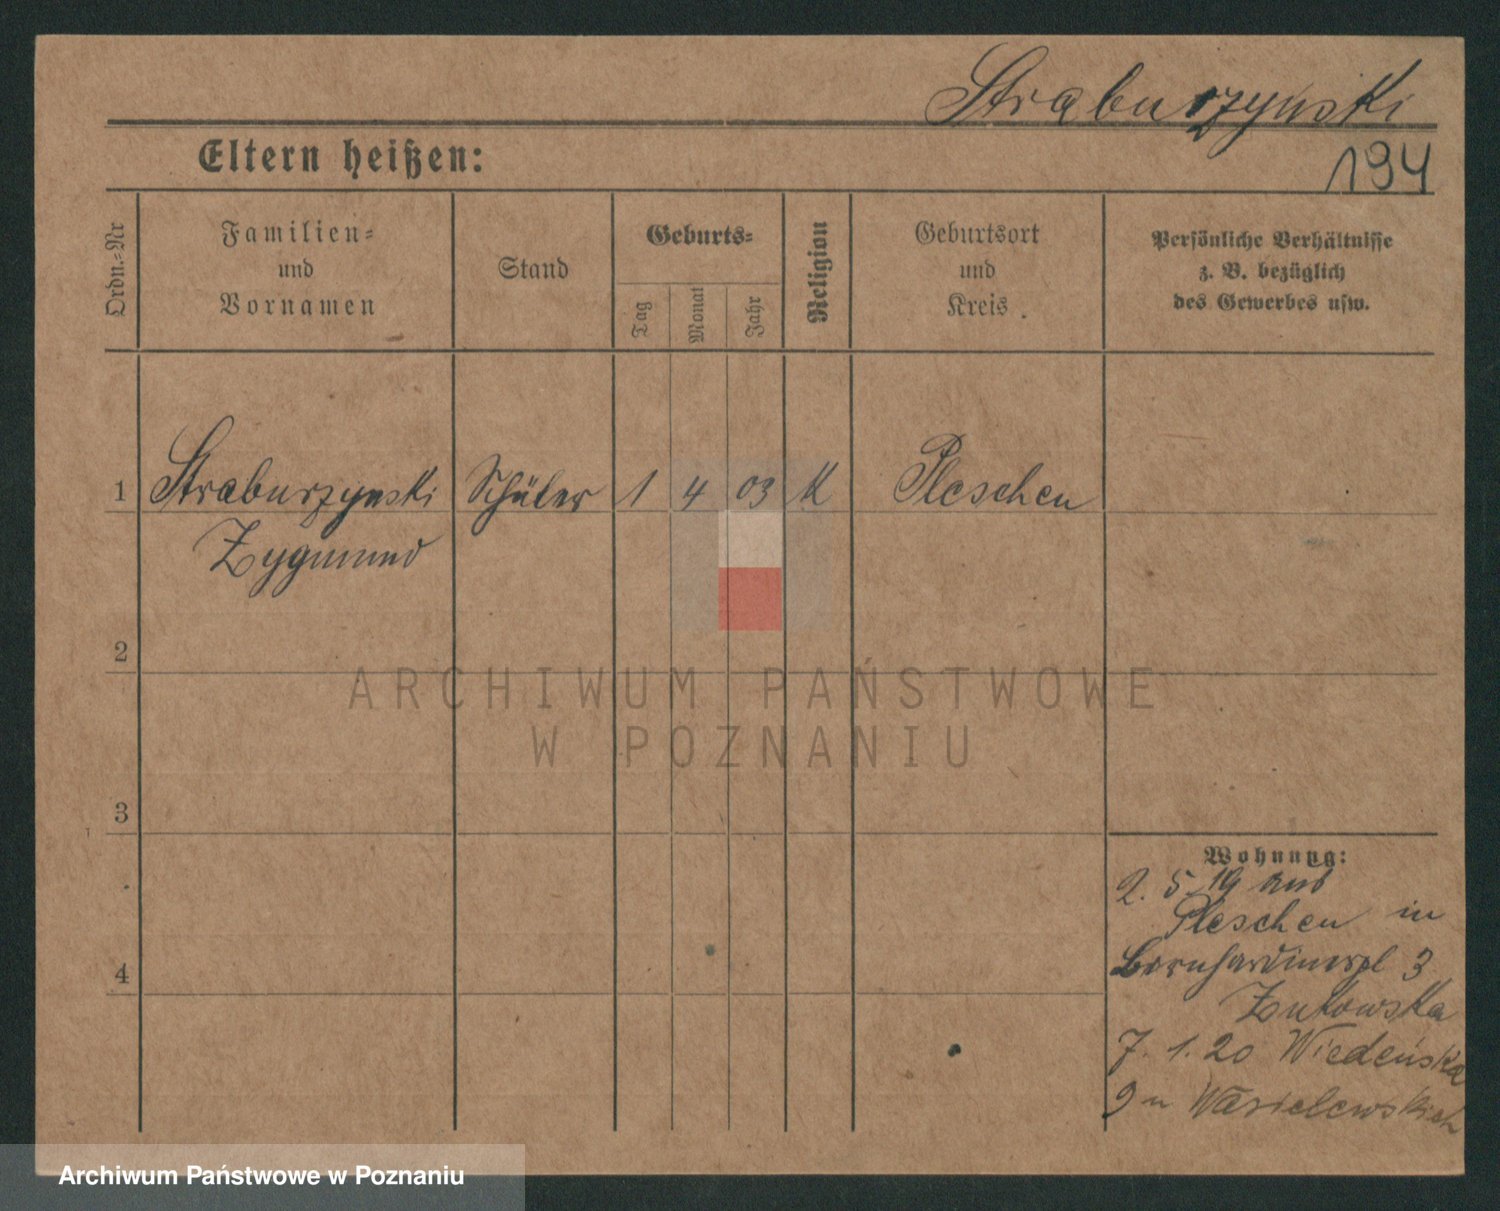 Straburzynski
Eltern heißen:
194
Ordn.-Nr
Familien-
und
Vornamen
Stand
Geburts-
Tag
Monat
Jahr
Religion
Geburtsort
und
Kreis
Persönliche Verhältnisse
z. B. bezüglich
des Gewerbes usw.
1 Straburzynski Schüler 1 4 03 K Pleschen
Zygmund
2
ARCHIWUM PAŃSTWOWE
W POZNANIU
3
Wohnung:
2. 5. 19 aus
Pleschen in
Bernhardinerpl 3
Zutowska
4
7. 1. 20 Wiedeńska
9 u Wasielewskich
Archiwum Państwowe w Poznaniu